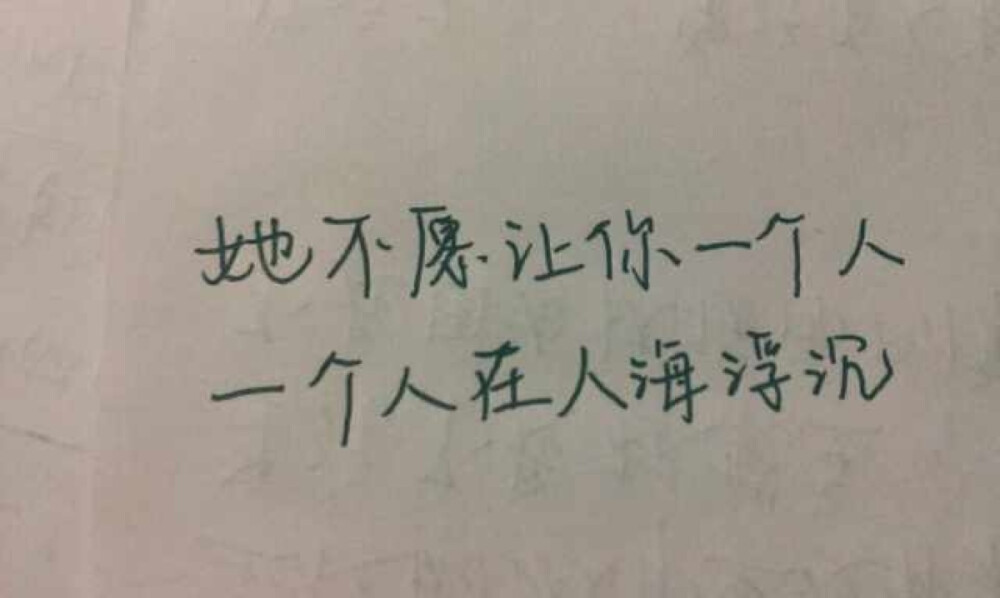 她不愿让你一个人
一个人在人海浮沉